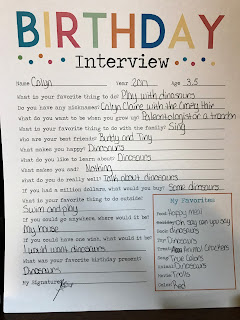 BIRTHDAY
Interview
Name Colyn Year 2017 Age 3.5
What is your favorite thing to do? Play with dinosaurs
Do you have any nicknames? Colyn Claine with the Crazy Hair
What do you want to be when you grow up? Paleontologist or a
What is your favorite thing to do with the family? Sing
Who are your best friends? Buddy and Tiny
What makes you happy? Dinosaurs
What do you like to learn about? Dinosaurs
What makes you sad? Nothing
What do you do really well? Talk about dinosaurs
If you had a million dollars, what would you buy? Some dinosaurs
What is your favorite thing to do outside?
Swim and play
If you could go anywhere, where would it be?
My house
If you could have one wish, what would it be?
I would want dinosaurs
What was your favorite birthday present?
Dinosaurs
My Signature
My Favorites
Food: Happy meal
Oh, say can you say
Dinosaurs
Toy: Dinosaurs
Animal Crackers
Song: True Colors
Animal: Dinosaurs
Movie: Trolls
Color: Red